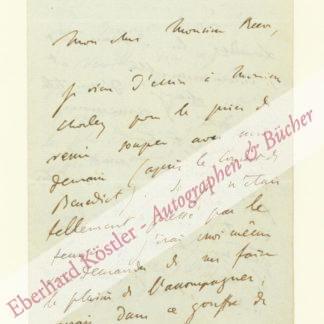 Mon cher Monsieur Reeve,
Je viens d'écrire à Monsieur
Chorley pour le prier de
venir souper avec nous
demain (après le Concert
Benedict). Si je n'étais
tellement pressé par le
temps j'irais moi même
demander de me faire
le plaisir de l'accompagner,
mais dans ce gouffre de
Eberhard Köstler - Autographen & Bücher